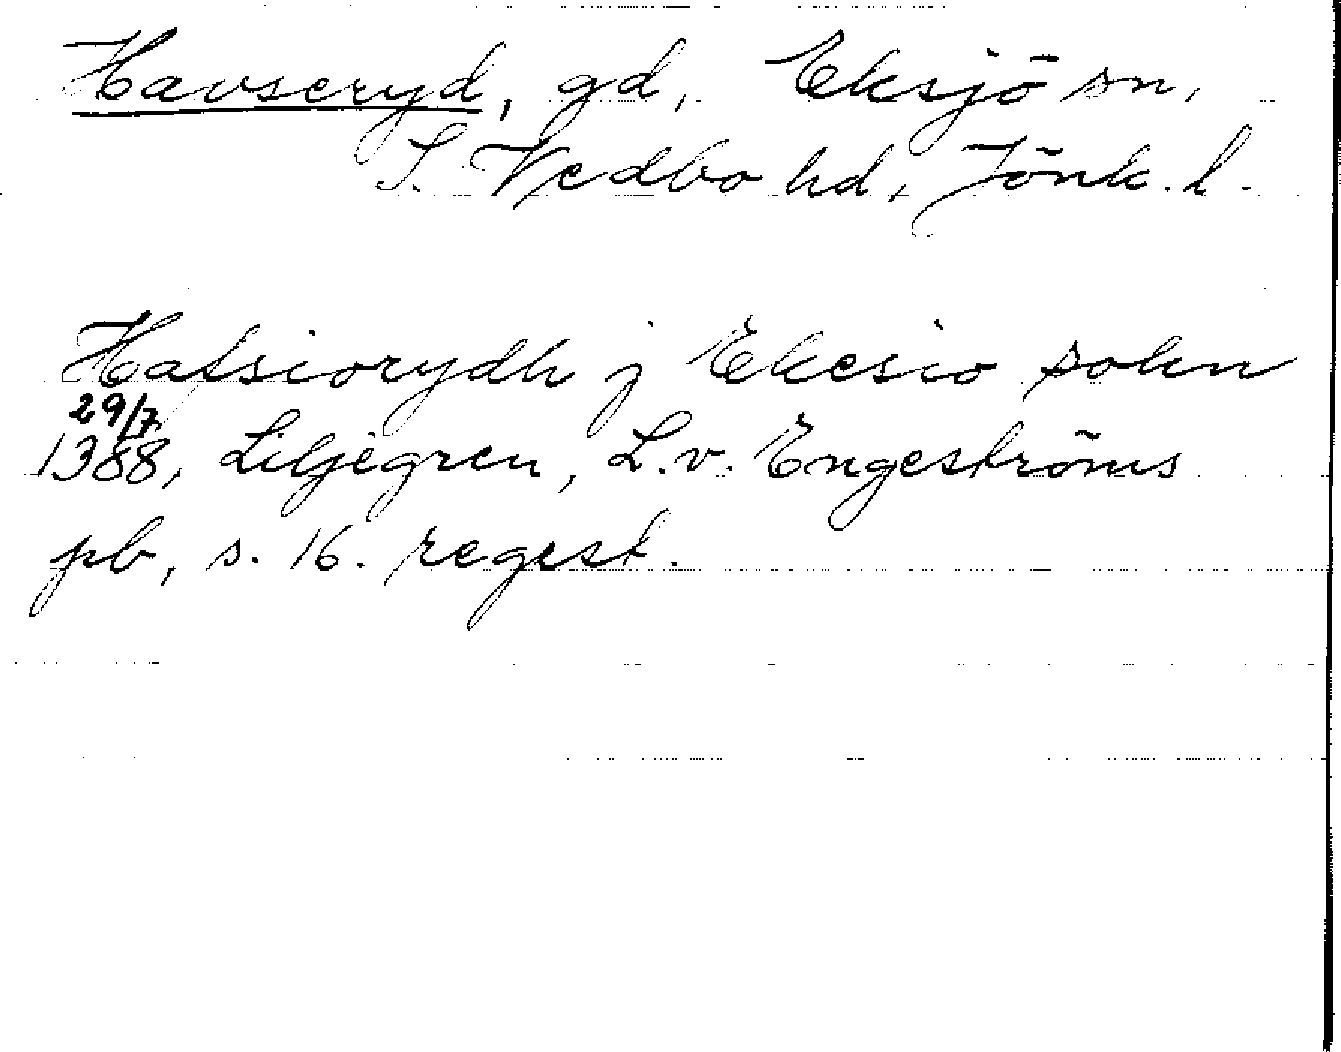 Havseryd, gd, Eksjö sn,
S. Vedbo hd, Jönk. l.
Hafsiorydh j Ekesio sokn
29/7
1388, Liljegren, L. v. Engeströms
pb, s. 16. regest.